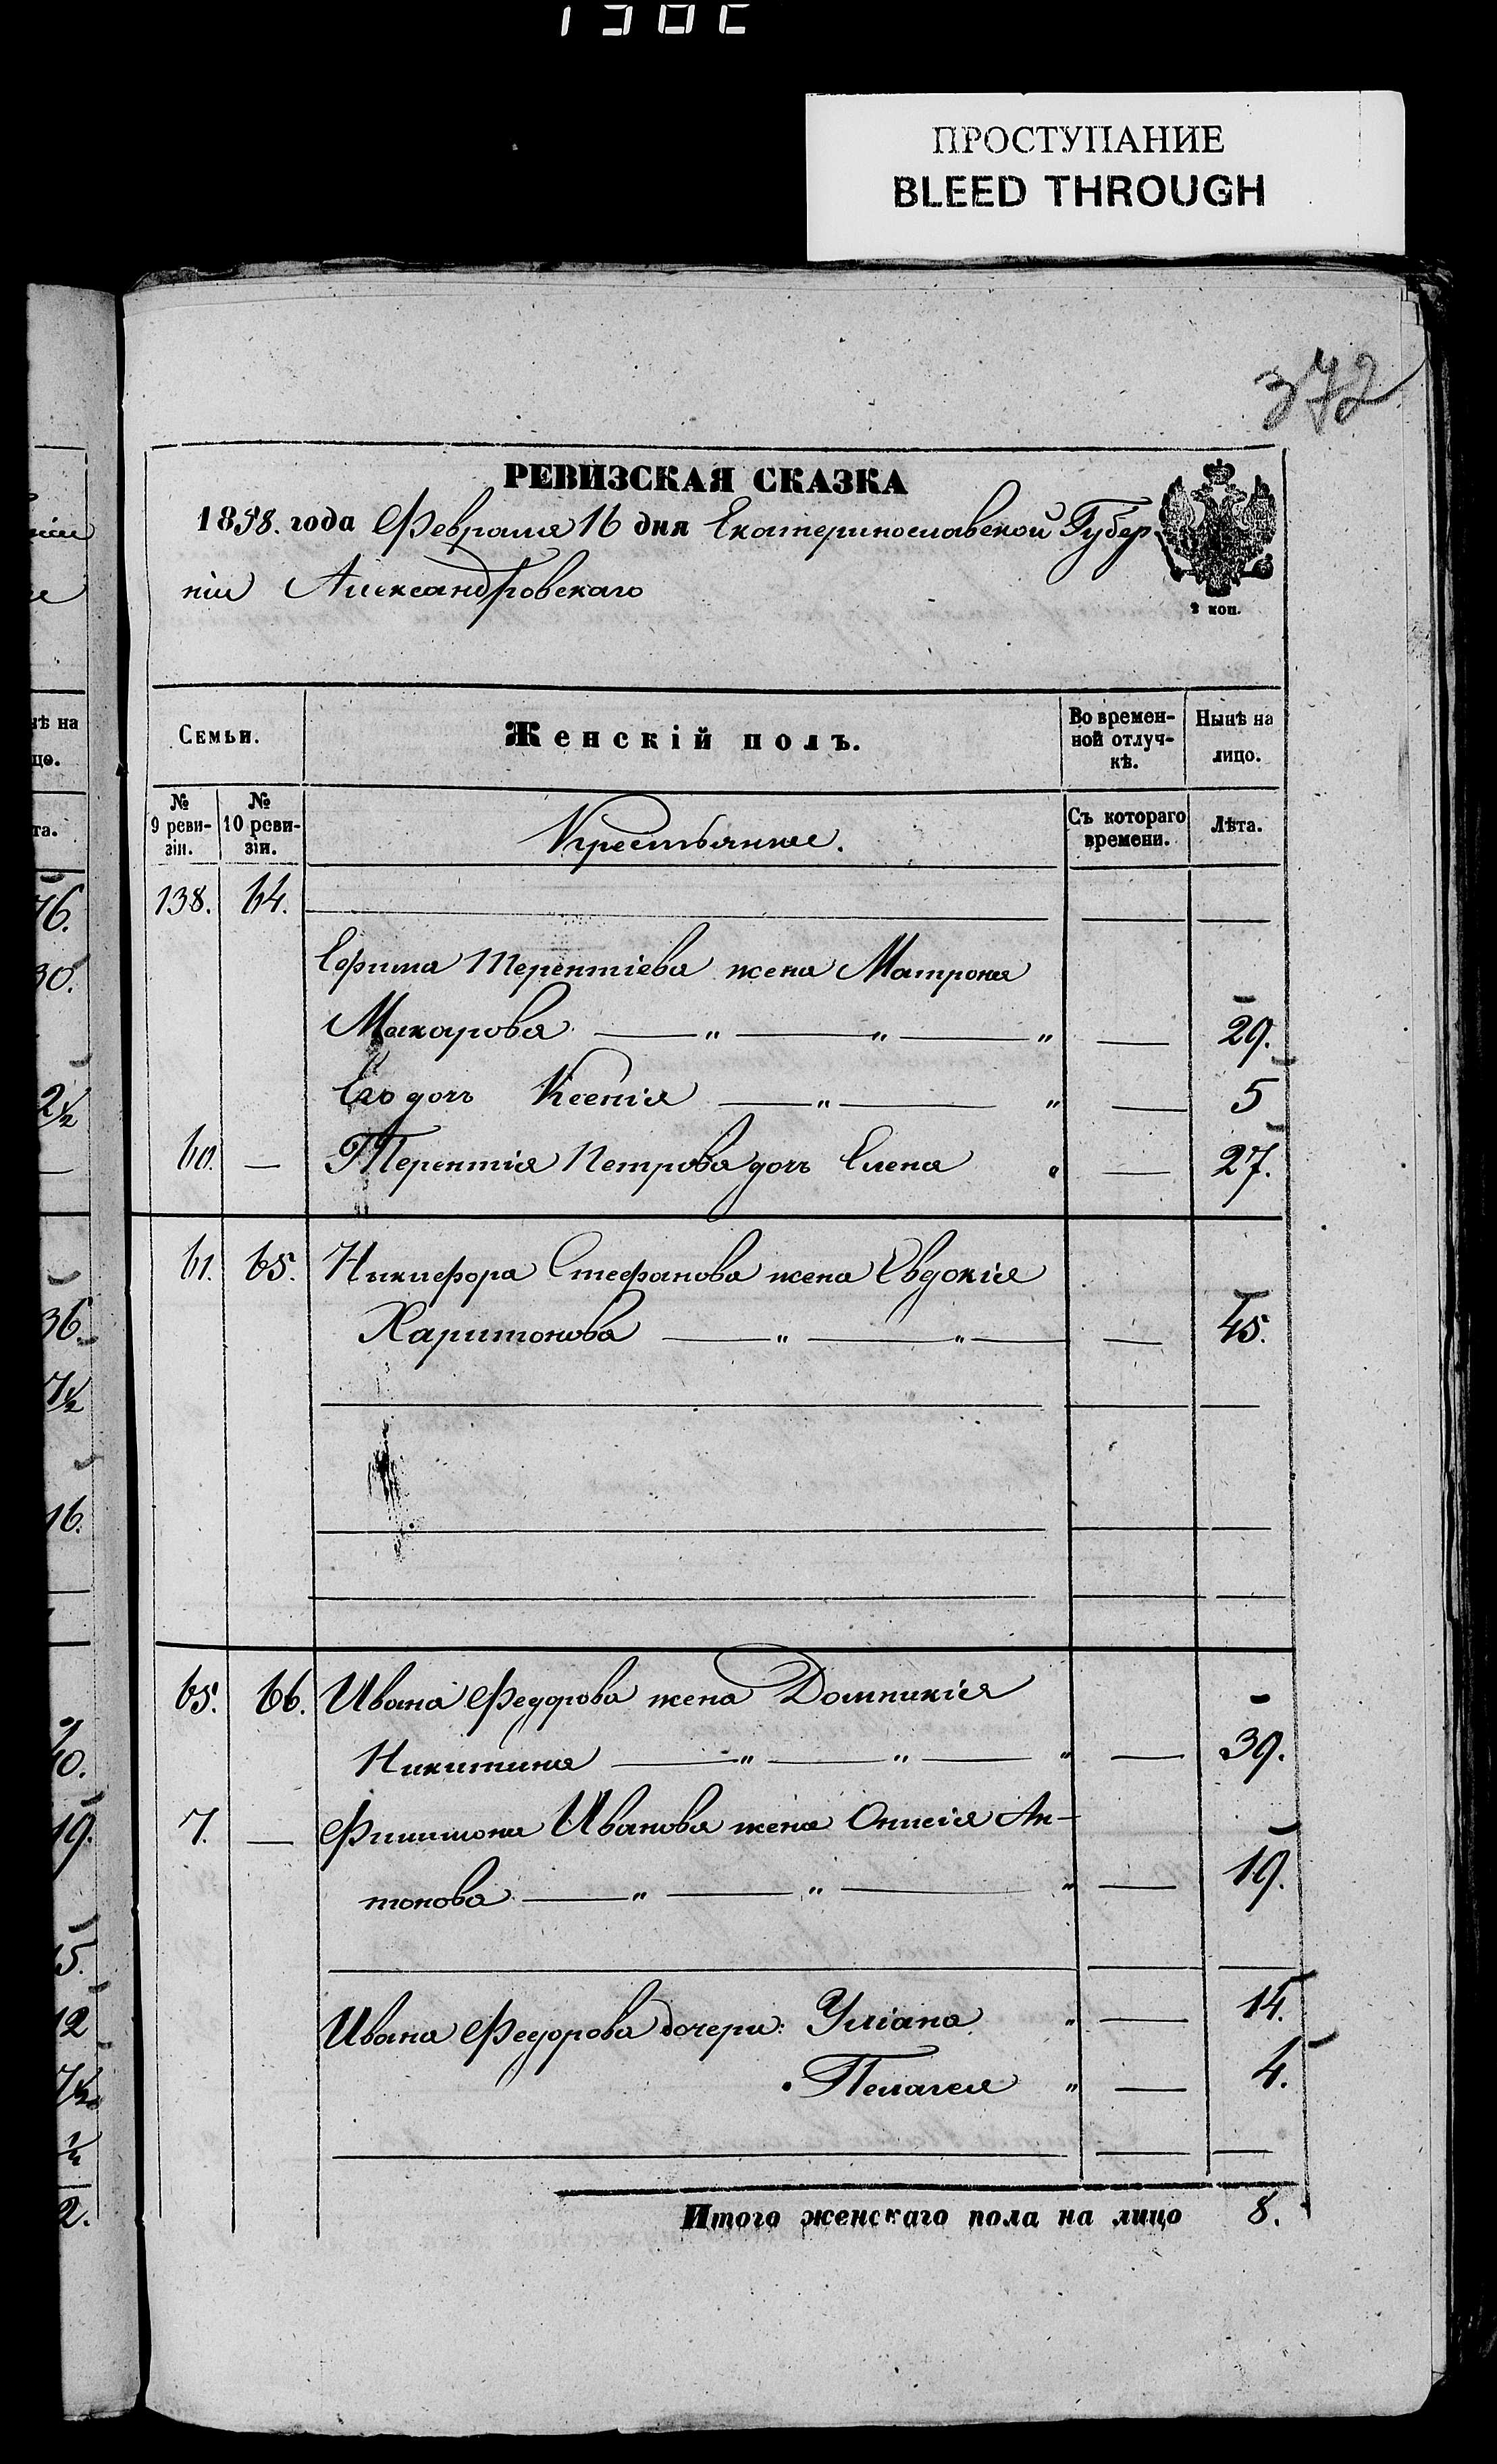 ПРОСТУПАНИЕ
BLEED THROUGH
372
РЕВИЗСКАЯ СКАЗКА
1858. года Февраля 16 дня Екатеринославской Губер-
ніи Александровскаго
2 коп.
Семьи. Женскій полъ. Во времен-ной отлуч-кѣ. Нынѣ на лицо.
№ 9 реви-зіи. № 10 реви-зіи. Крестьянке. Съ котораго времени. Лѣта.
138. 64.
Ефима Терентіева жена Матрона
Макарова — „ — „ — „ — 29.
Его дочь Ксенія — „ — „ — 5
60. — Терентія Петрова дочь Елена „ — 27.
61. 65. Никифора Стефанова жена Евдокія
Харитонова — „ — „ — — 45.
65. 66. Ивана Федорова жена Домникія
Никитина — „ — „ — „ — 39.
7. — Филимона Иванова жена Онисія Ан-
тонова — „ — „ — „ — 19.
Ивана Федорова дочери: Уліана „ — 14.
Пелагея „ — 4.
Итого женскаго пола на лицо 8.